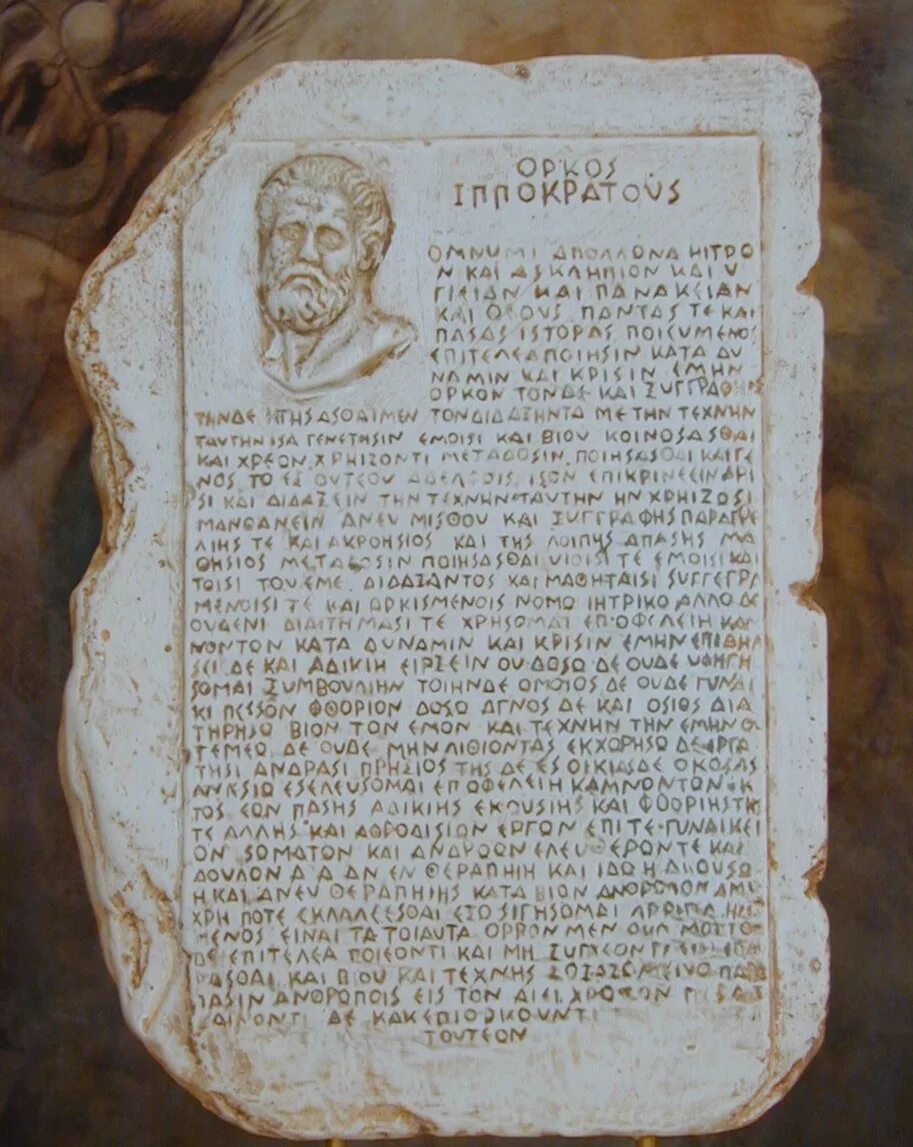 ΟΡΚΟΣ
ΙΠΠΟΚΡΑΤΟΥΣ
ΟΜΝΥΜΙ ΑΠΟΛΛΩΝΑ ΗΙΤΡΟ
Ν ΚΑΙ ΑΣΚΛΗΠΙΟΝ ΚΑΙ Υ
ΓΙΕΙΑΝ ΚΑΙ ΠΑΝΑΚΕΙΑΝ
ΚΑΙ ΘΕΟΥΣ ΠΑΝΤΑΣ ΤΕ ΚΑΙ
ΠΑΣΑΣ ΙΣΤΟΡΑΣ ΠΟΙΕΥΜΕΝΟΣ
ΕΠΙΤΕΛΕΑ ΠΟΙΗΣΙΝ ΚΑΤΑ ΔΥ
ΝΑΜΙΝ ΚΑΙ ΚΡΙΣΙΝ ΕΜΗΝ
ΟΡΚΟΝ ΤΟΝΔΕ ΚΑΙ ΞΥΓΓΡΑΦΗΝ
ΤΗΝΔΕ ΤΟΝ ΔΙΔΑΞΗΝΤΑ ΜΕ ΤΗΝ ΤΕΧΝΗΝ
ΤΑΥΤΗΝ ΙΣΑ ΓΕΝΕΤΗΣΙΝ ΕΜΟΙΣΙ ΚΑΙ ΒΙΟΥ ΚΟΙΝΟΣΑΣΘΑΙ
ΚΑΙ ΧΡΕΩΝ ΧΡΗΙΖΟΝΤΙ ΜΕΤΑΔΟΣΙΝ ΠΟΙΗΣΑΣΘΑΙ ΚΑΙ ΓΕ
ΝΟΣ ΤΟ ΕΞ ΟΥΤΕΟΥ ΑΔΕΛΦΟΙΣ ΙΣΟΝ ΕΠΙΚΡΙΝΕΕΙΝ ΑΡΙ
ΣΙ ΚΑΙ ΔΙΔΑΞΕΙΝ ΤΗΝ ΤΕΧΝΗΝ ΤΑΥΤΗΝ ΗΝ ΧΡΗΙΖΟΣΙ
ΜΑΝΘΑΝΕΙΝ ΑΝΕΥ ΜΙΣΘΟΥ ΚΑΙ ΞΥΓΓΡΑΦΗΣ ΠΑΡΑΓΓΕ
ΛΙΗΣ ΤΕ ΚΑΙ ΑΚΡΟΗΣΙΟΣ ΚΑΙ ΤΗΣ ΛΟΙΠΗΣ ΑΠΑΣΗΣ ΜΑ
ΘΗΣΙΟΣ ΜΕΤΑΔΟΣΙΝ ΠΟΙΗΣΑΣΘΑΙ ΥΙΟΙΣΙ ΤΕ ΕΜΟΙΣΙ ΚΑΙ
ΤΟΙΣΙ ΤΟΥ ΕΜΕ ΔΙΔΑΞΑΝΤΟΣ ΚΑΙ ΜΑΘΗΤΑΙΣΙ ΣΥΓΓΕΓΡΑ
ΜΕΝΟΙΣΙ ΤΕ ΚΑΙ ΩΡΚΙΣΜΕΝΟΙΣ ΝΟΜΩ ΙΗΤΡΙΚΟ ΑΛΛΟ ΔΕ
ΟΥΔΕΝΙ ΔΙΑΙΤΗΜΑΣΙ ΤΕ ΧΡΗΣΟΜΑΙ ΕΠ ΟΦΕΛΕΙΗ ΚΑΜ
ΝΟΝΤΟΝ ΚΑΤΑ ΔΥΝΑΜΙΝ ΚΑΙ ΚΡΙΣΙΝ ΕΜΗΝ ΕΠΙ ΔΗΛ
ΣΕΙ ΔΕ ΚΑΙ ΑΔΙΚΙΗ ΕΙΡΞΕΙΝ ΟΥ ΔΩΣΩ ΔΕ ΟΥΔΕ ΥΦΗΓΗ
ΣΟΜΑΙ ΞΥΜΒΟΥΛΙΗΝ ΤΟΙΗΝΔΕ ΩΜΟΙΟΣ ΔΕ ΟΥΔΕ ΓΥΝΑΙ
ΚΙ ΠΕΣΣΟΝ ΦΘΟΡΙΟΝ ΔΟΣΩ ΑΓΝΟΣ ΔΕ ΚΑΙ ΟΣΙΟΣ ΔΙΑ
ΤΗΡΗΣΩ ΒΙΟΝ ΤΟΝ ΕΜΟΝ ΚΑΙ ΤΕΧΝΗΝ ΤΗΝ ΕΜΗΝ Ο
ΤΕΜΕΩ ΔΕ ΟΥΔΕ ΜΗΝ ΛΙΘΙΟΝΤΑΣ ΕΚΧΩΡΗΣΩ ΔΕ ΕΡΓΑ
ΤΗΣΙ ΑΝΔΡΑΣΙ ΠΡΗΞΙΟΣ ΤΗΣ ΔΕ ΕΣ ΟΙΚΙΑΣ ΔΕ ΟΚΟΣΑΣ
ΑΝ ΕΣΕΛΕΥΣΟΜΑΙ ΕΠ ΩΦΕΛΕΙΗ ΚΑΜΝΟΝΤΩΝ ΕΚ
ΤΟΣ ΕΩΝ ΠΑΣΗΣ ΑΔΙΚΙΗΣ ΕΚΟΥΣΙΗΣ ΚΑΙ ΦΘΟΡΙΗΣ ΤΗ
ΤΕ ΑΛΛΗΣ ΚΑΙ ΑΦΡΟΔΙΣΙΩΝ ΕΡΓΩΝ ΕΠΙ ΤΕ ΓΥΝΑΙΚΕΙ
ΟΝ ΣΩΜΑΤΩΝ ΚΑΙ ΑΝΔΡΩΩΝ ΕΛΕΥΘΕΡΩΝ ΤΕ ΚΑΙ
ΔΟΥΛΟΝ Α Δ ΑΝ ΕΝ ΘΕΡΑΠΗΙΗ ΚΑΙ ΙΔΩ Η ΑΚΟΥΣΩ
Η ΚΑΙ ΑΝΕΥ ΘΕΡΑΠΗΙΗΣ ΚΑΤΑ ΒΙΟΝ ΑΝΘΡΩΠΩΝ Α ΜΗ
ΧΡΗ ΠΟΤΕ ΕΚΛΑΛΕΕΣΘΑΙ ΕΞΟ ΣΙΓΗΣΟΜΑΙ ΑΡΡΗΤΑ
ΜΕΝΟΣ ΕΙΝΑΙ ΤΑ ΤΟΙΑΥΤΑ ΟΡΡΟΝ ΜΕΝ ΟΥΝ
ΔΕ ΕΠΙΤΕΛΕΑ ΠΟΙΕΟΝΤΙ ΚΑΙ ΜΗ ΞΥΓΧΕΟΝΤΙ
ΡΑΣΘΑΙ ΚΑΙ ΒΙΟΥ ΚΑΙ ΤΕΧΝΗΣ ΠΑΡΑ
ΠΑΣΙΝ ΑΝΘΡΟΠΟΙΣ ΕΙΣ ΤΟΝ ΑΙΕΙ ΧΡΟΝΟΝ
ΔΕ ΚΑΚ ΕΠΙΟΡΚΟΥΝΤΙ
ΤΟΥΤΕΟΝ